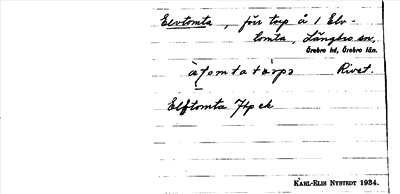 Elvtomta, förr torp å 1 Elv-
tomta, Långbro sn,
Örebro hd, Örebro län.
Rivet.
Elftomta Jtp ek
KARL-ELIS NYSTEDT 1934.